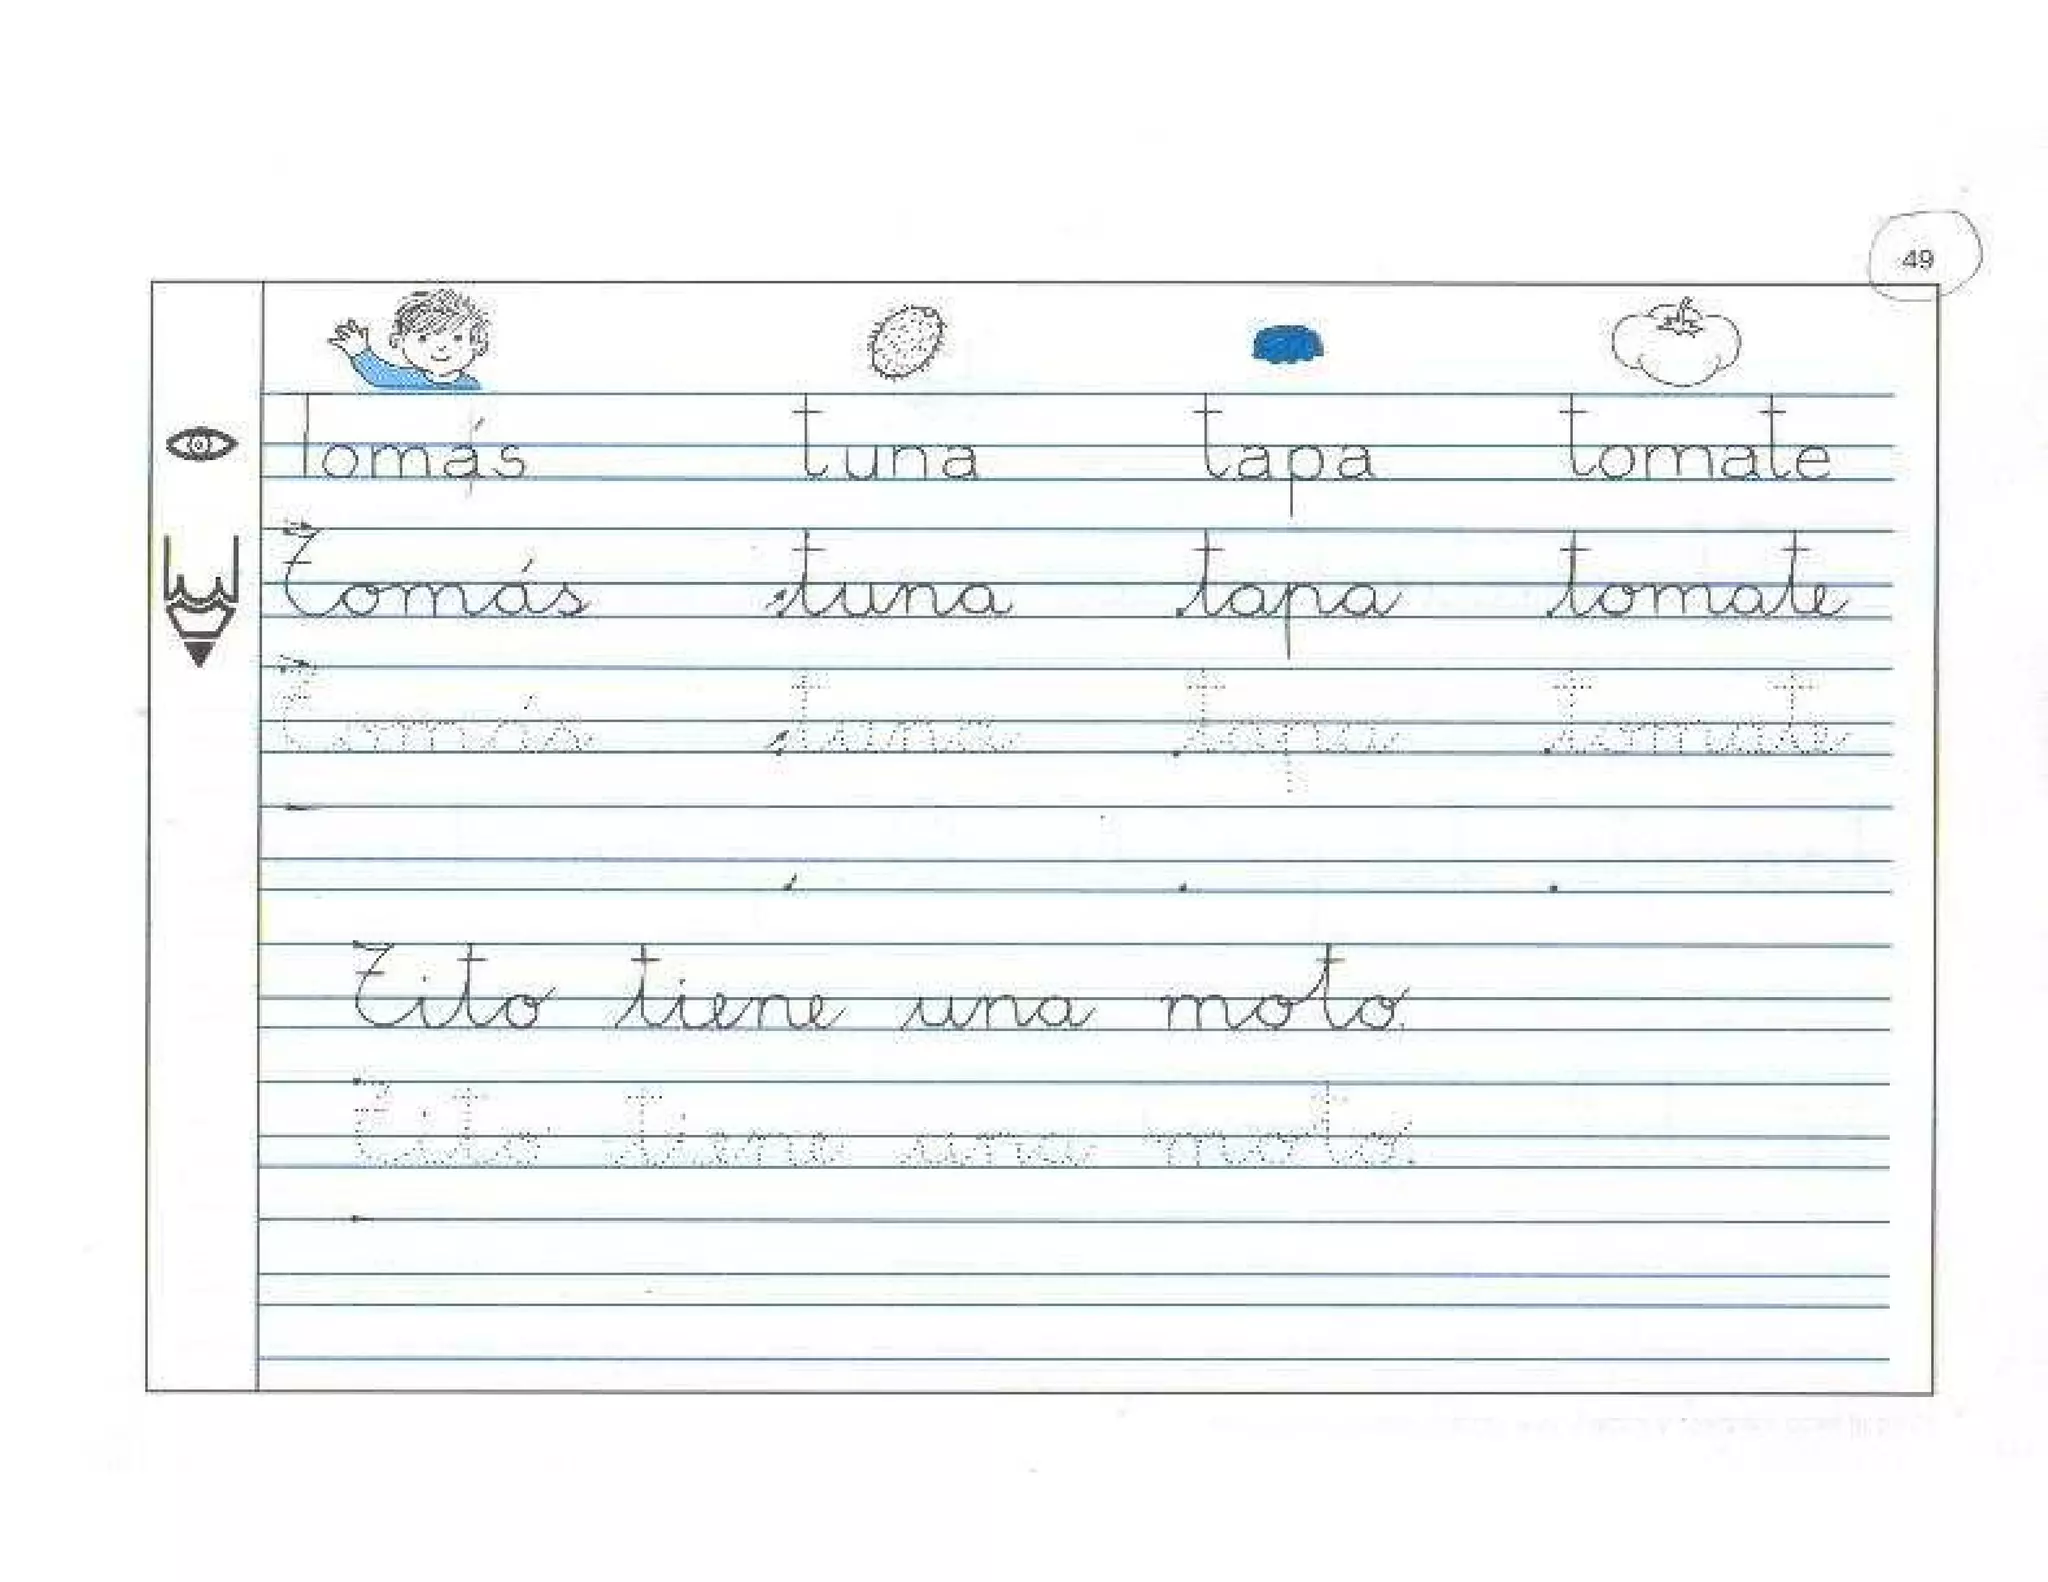 49
Tomás tuna tapa tomate
Tomás tuna tapa tomate
Tomás tuna tapa tomate
Tito tiene una moto.
Tito tiene una moto.